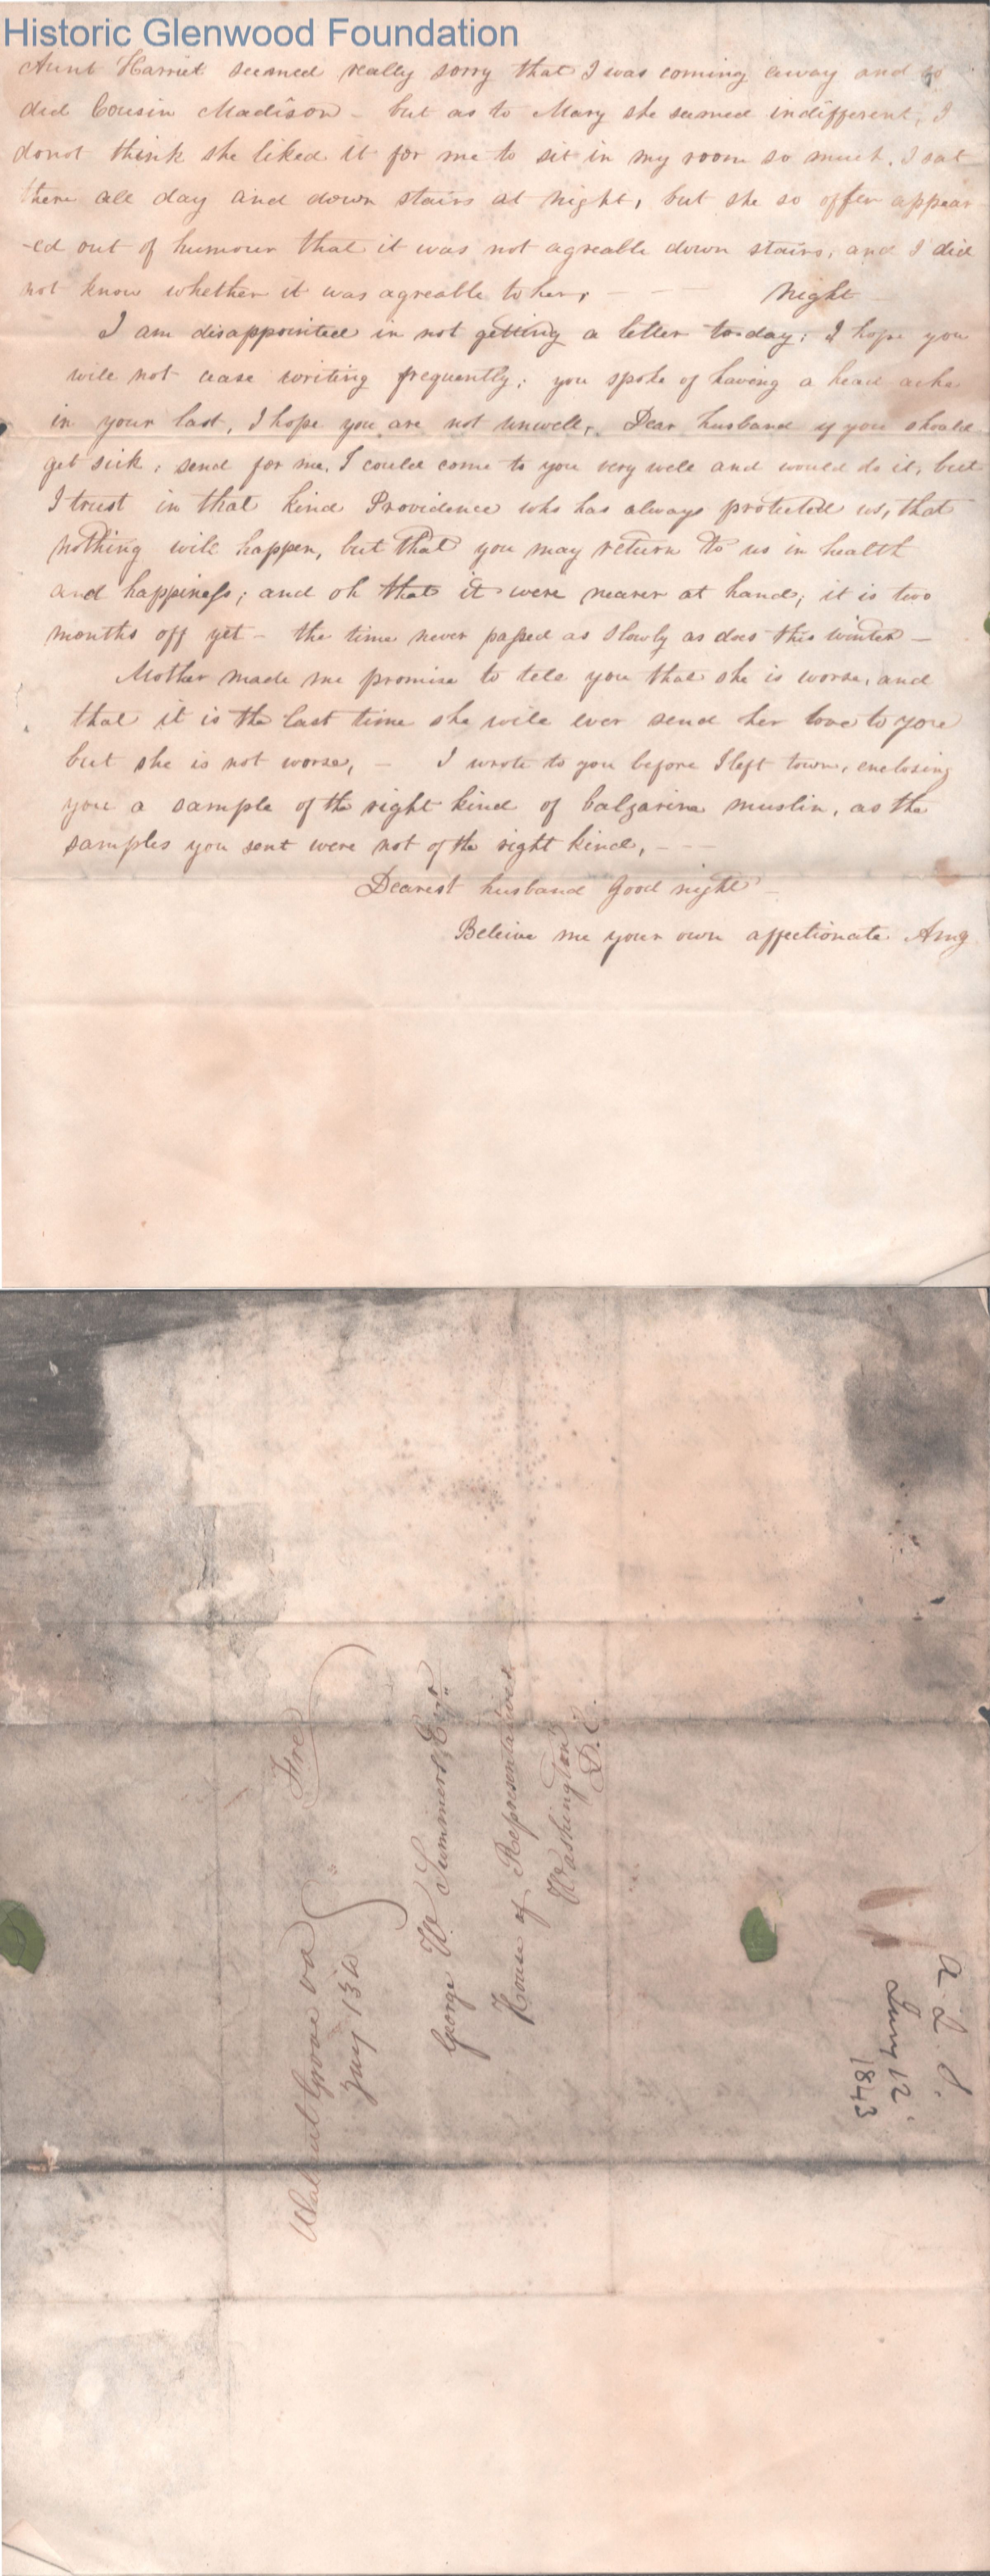 Historic Glenwood Foundation
Aunt Harriet seemed really sorry that I was coming away and so
did Cousin Madison - but as to Mary she seemed indifferent, I
donot think she liked it for me to sit in my room so much, I sat
there all day and down stairs at night, but she so often appear
-ed out of humour that it was not agreable down stairs, and I did
not know whether it was agreable to her, - — night
I am disappointed in not getting a letter to-day; I hope you
will not cease writing frequently; you spoke of having a head ache
in your last, I hope you are not unwell, Dear husband if you should
get sick, send for me, I could come to you very well and would do it, but
I trust in that kind Providence who has always protected us, that
nothing will happen, but that you may return to us in health
and happiness; and oh that it were nearer at hand; it is two
months off yet - the time never passed as slowly as does this winter -
Mother made me promise to tell you that she is worse, and
that it is the last time she will ever send her love to you
but she is not worse, - I wrote to you before I left town, enclosing
you a sample of the right kind of balzarina muslin, as the
samples you sent were not of the right kind, - - -
Dearest husband good night -
Beleive me your own affectionate Amy
Walnut Grove va
Jany 13th
Free
George W. Summers, Esqr.
House of Representatives
Washington
D.C.
A. L. S.
Jany 12.
1843